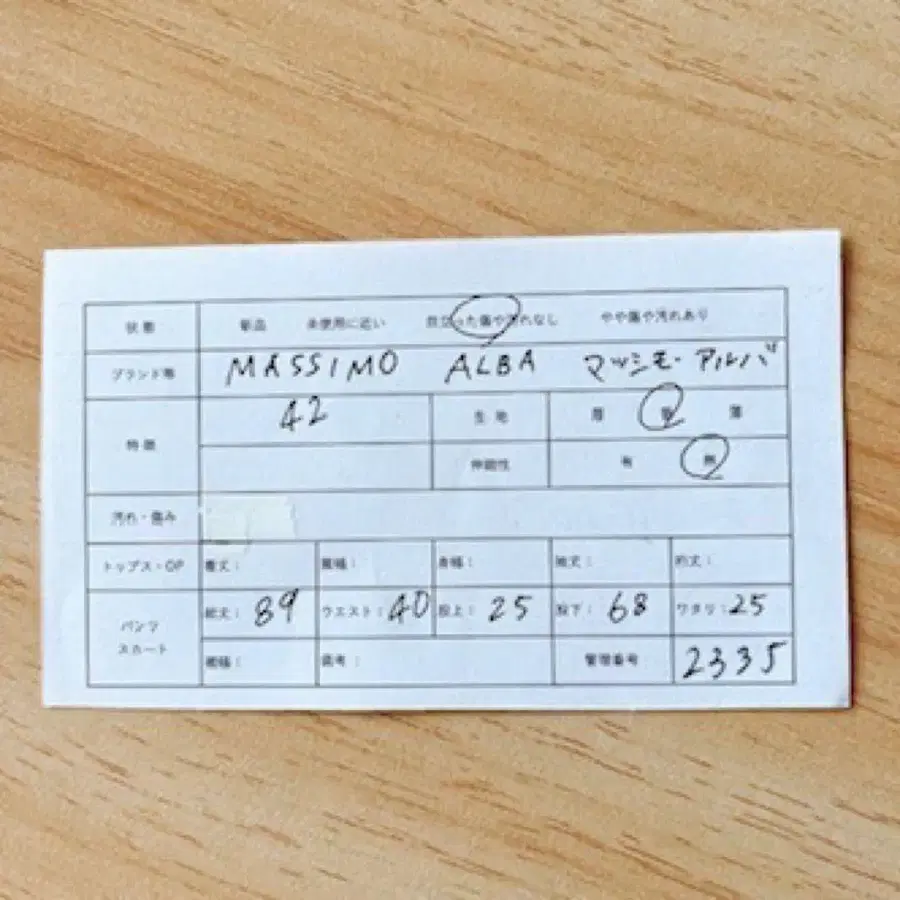 状態 新品 未使用に近い 目立った傷や汚れなし やや傷や汚れあり
ブランド等 MASSIMO ALBA マッシモ・アルバ
特徴 42 生地 厚 普 薄
伸縮性 有 無
汚れ・傷み
トップス・OP 着丈: 肩幅: 身幅: 袖丈: 裄丈:
パンツ スカート 総丈: 89 ウエスト: 40 股上: 25 股下: 68 ワタリ: 25
裾幅: 備考: 管理番号 2335